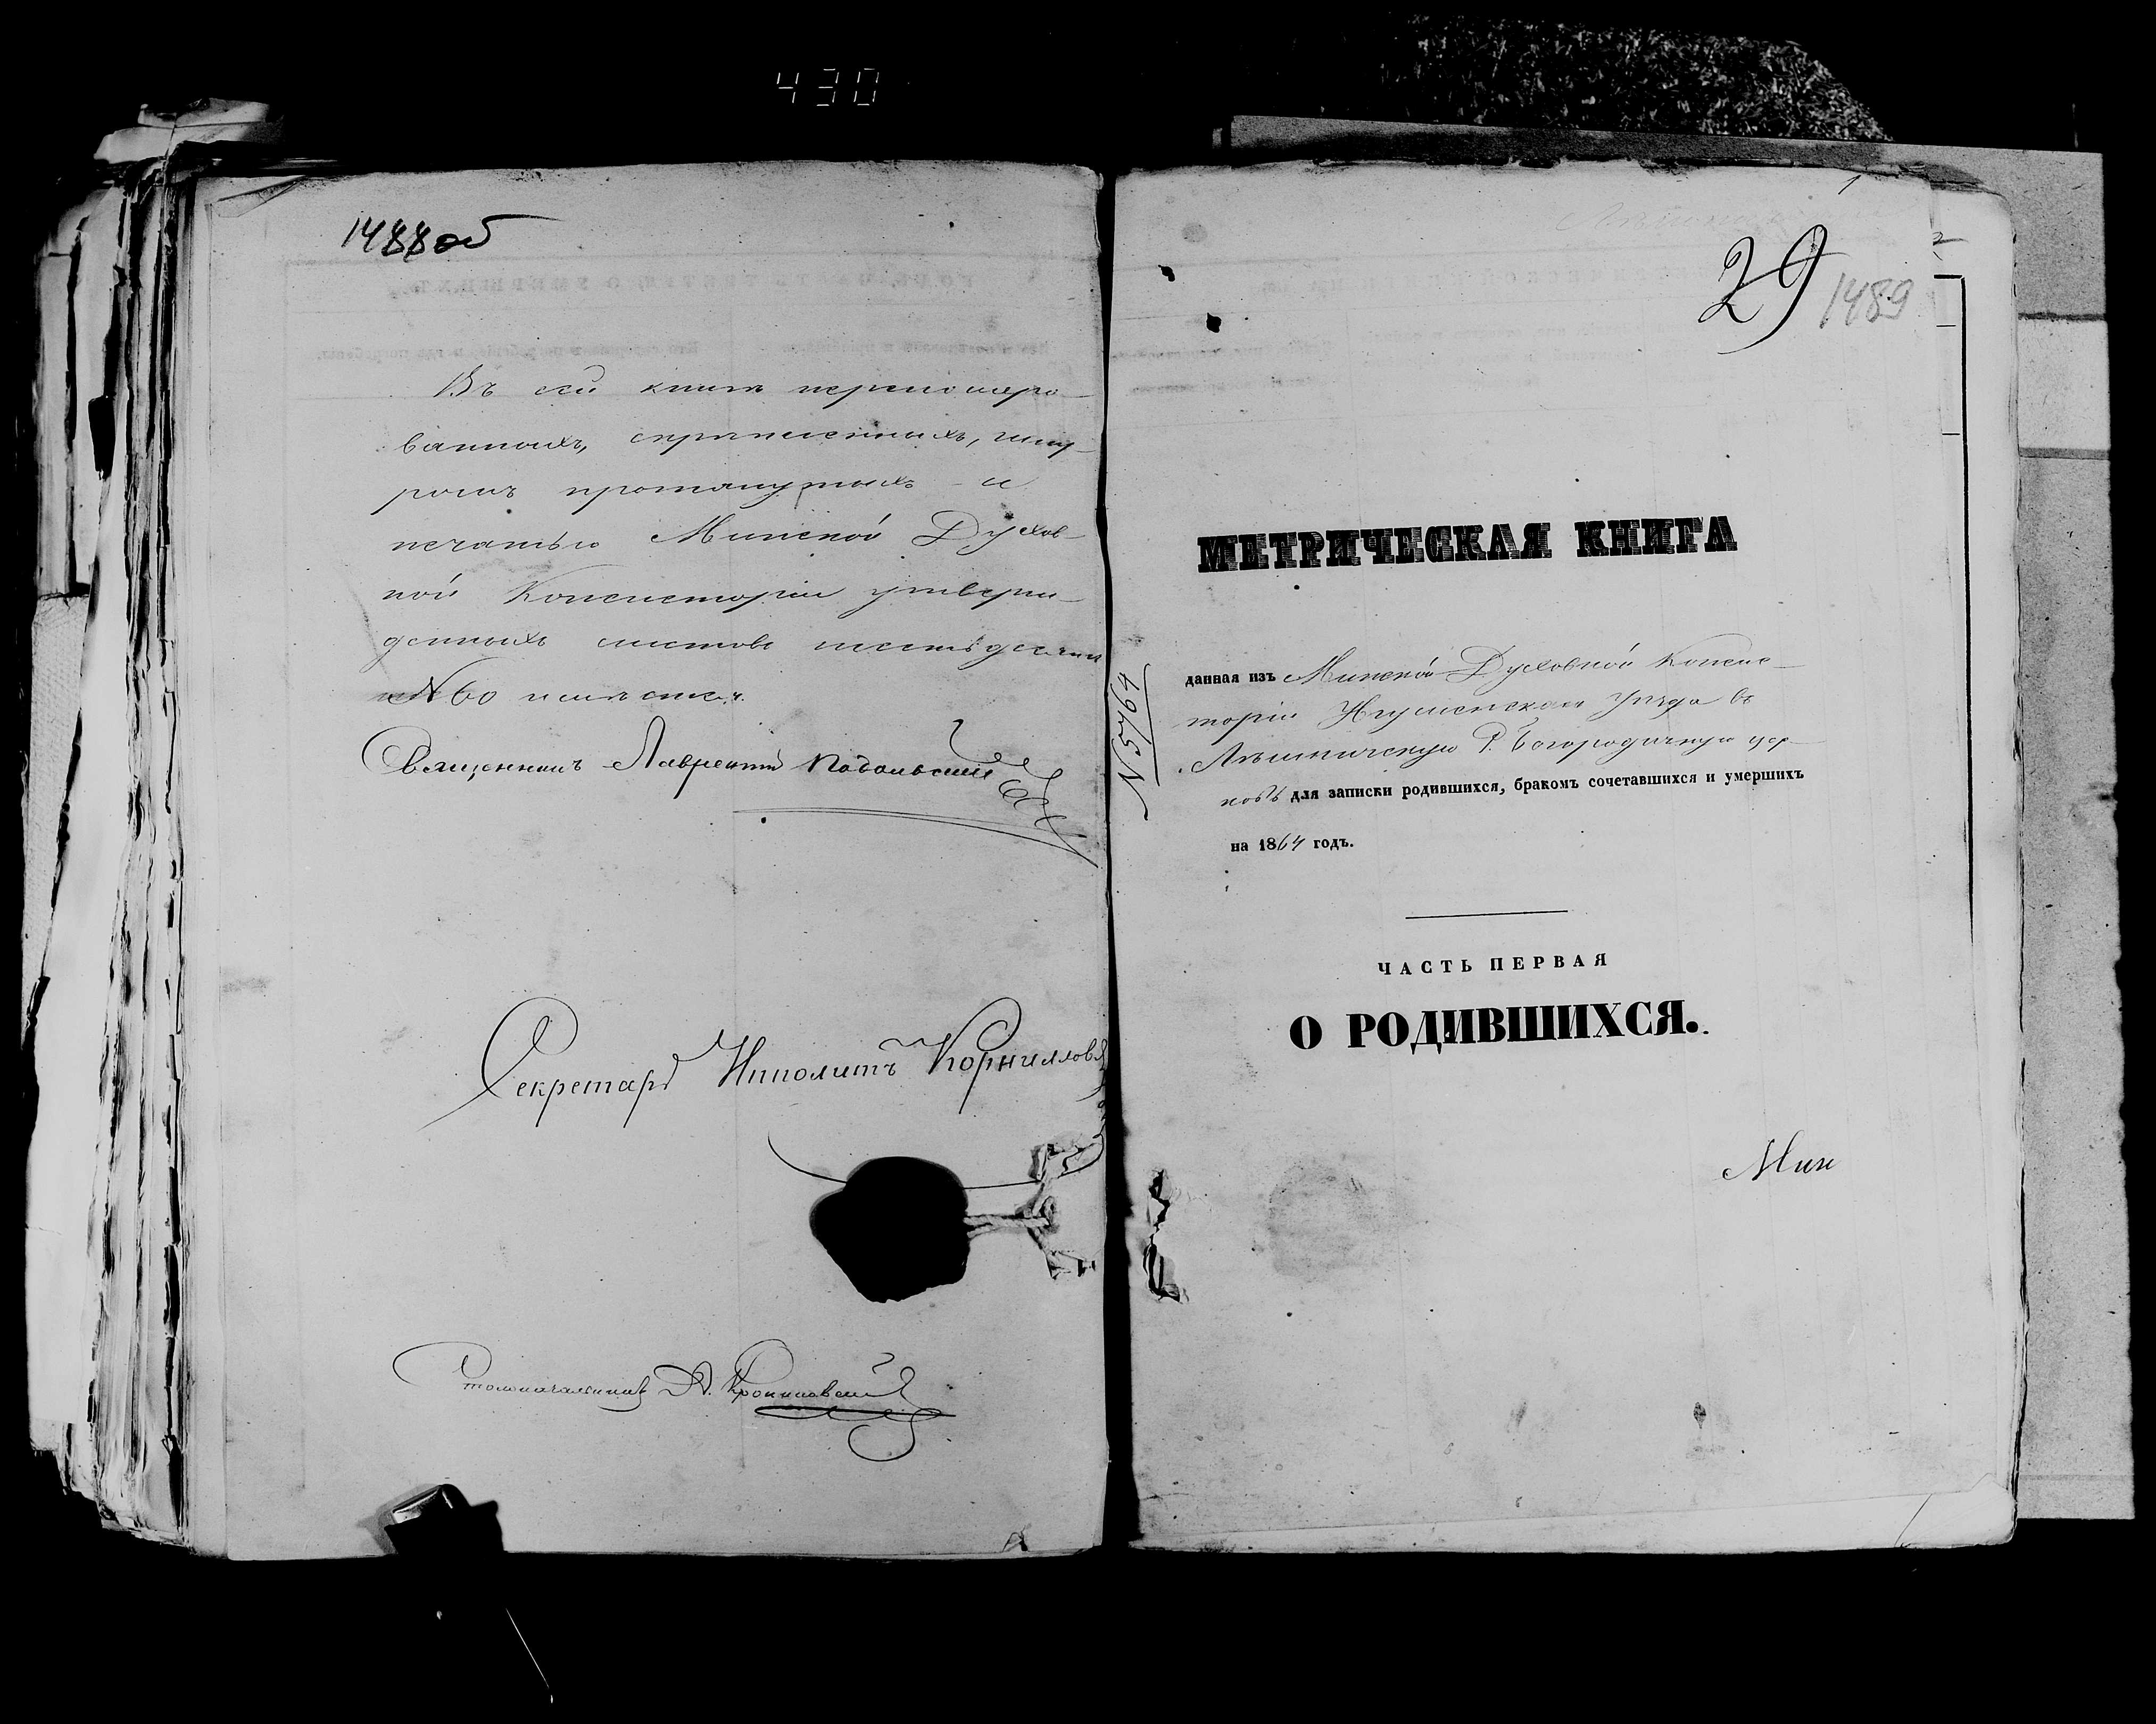 430
1488об
Въ сей книгѣ перенумеро-
ванныхъ, скрѣпленныхъ, шну-
ромъ протянутыхъ и
печатью Минской Духов-
ной Консисторіи утверж-
денныхъ листовъ шестьдесятъ
№ 60
Священникъ Лаврентій Подольскій
Секретарь Ипполитъ Корниловъ
Столоначальникъ А.
1
29
1489
МЕТРИЧЕСКАЯ КНИГА
данная изъ Минской Духовной Консис-
торіи Игуменскаго Уѣзда въ
Р. Богородичную цер-
ковь для записки родившихся, бракомъ сочетавшихся и умершихъ
на 1864 годъ.
N 5494
ЧАСТЬ ПЕРВАЯ
О РОДИВШИХСЯ.
Мин